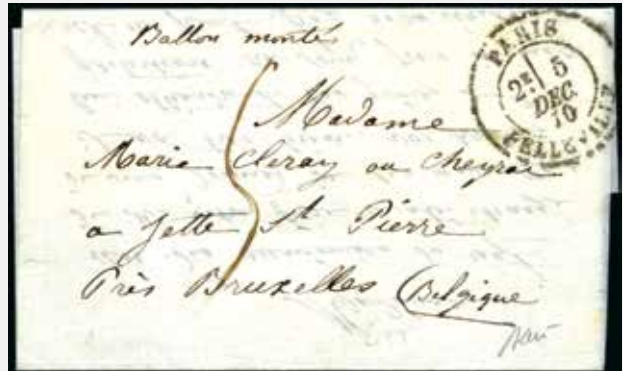 Ballon monté
PARIS
2E 5
DEC.
70
BELLEVILLE
Madame
Marie Cleray ou Cheyrai
a Jette St Pierre
Près Bruxelles (Belgique